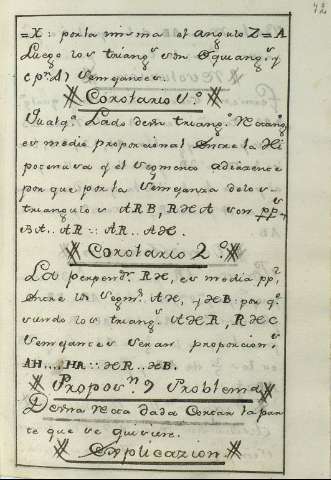 42
= X : por la misma el angulo Z = A
Luego los triang.s son Equiang.s y
semejantes.
Corolario 1.o
Qualq.a Lado de un triang.o Rectang.o
es media proporcional entre la Hi
potenusa y el segmento adiacente
por que por la semejanza de los
triangulos ARB, RHA son pp.s
BA..AR :: AR..AH.
Corolario 2.o
La perpend.r RH, es media pp.l
entre los segm.s AH, y HB: por q.e
siendo los triang.s AHR, RHC
semejantes seran proporcion.s
AH....HR :: HR..HB.
Propos.n 9 Problema
De una recta dada Cortar la par
te que se quisiere.
Explicazion